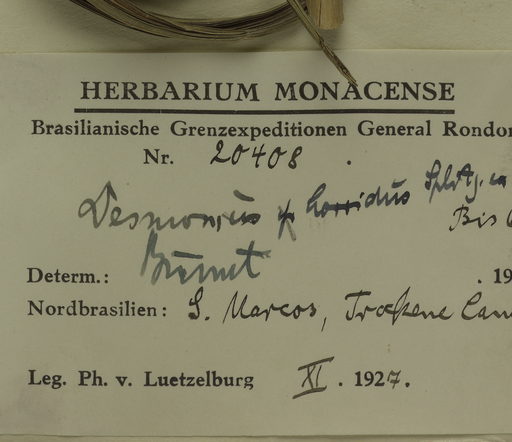 HERBARIUM MONACENSE
Brasilianische Grenzexpeditionen General Rondon
Nr. 20408.
Desmoncus horridus Splitg.
Burret
Determ.: . 19
Nordbrasilien: S. Marcos, Trockene
Leg. Ph. v. Luetzelburg XI. 1927.